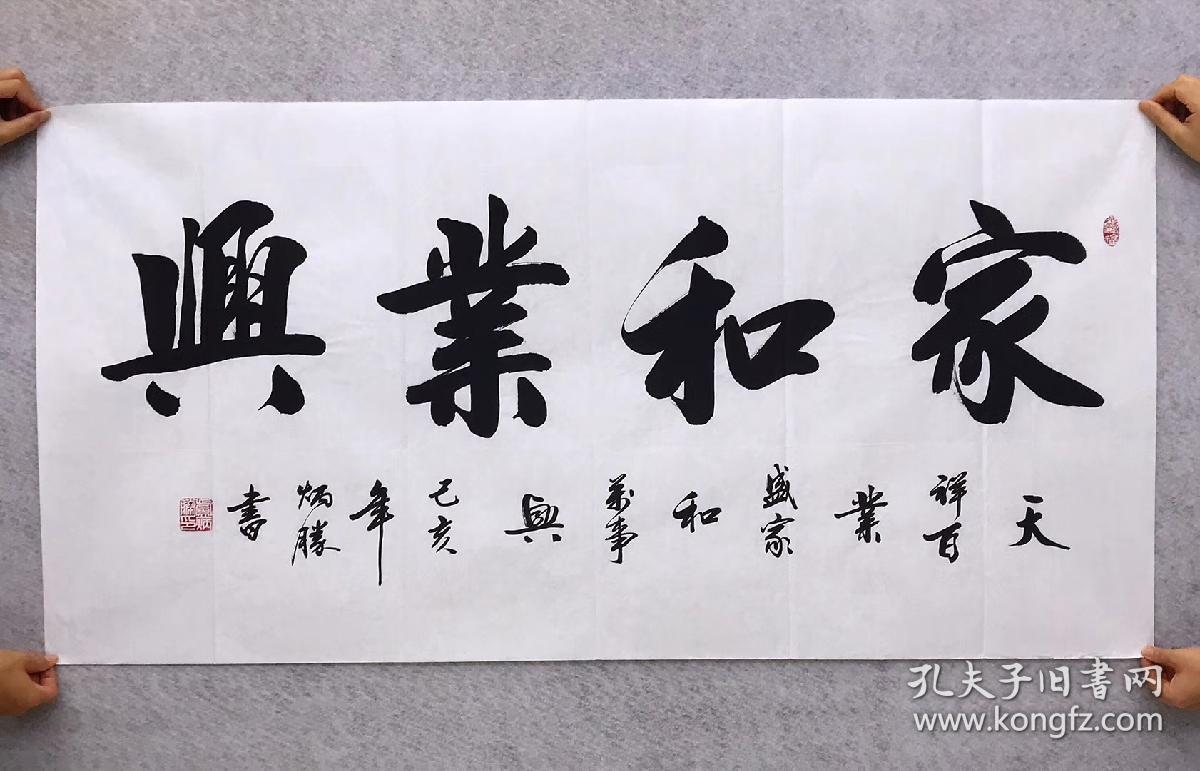 家和業興
天祥百業盛家和萬事興己亥年炳勝書
孔夫子旧書网
www.kongfz.com